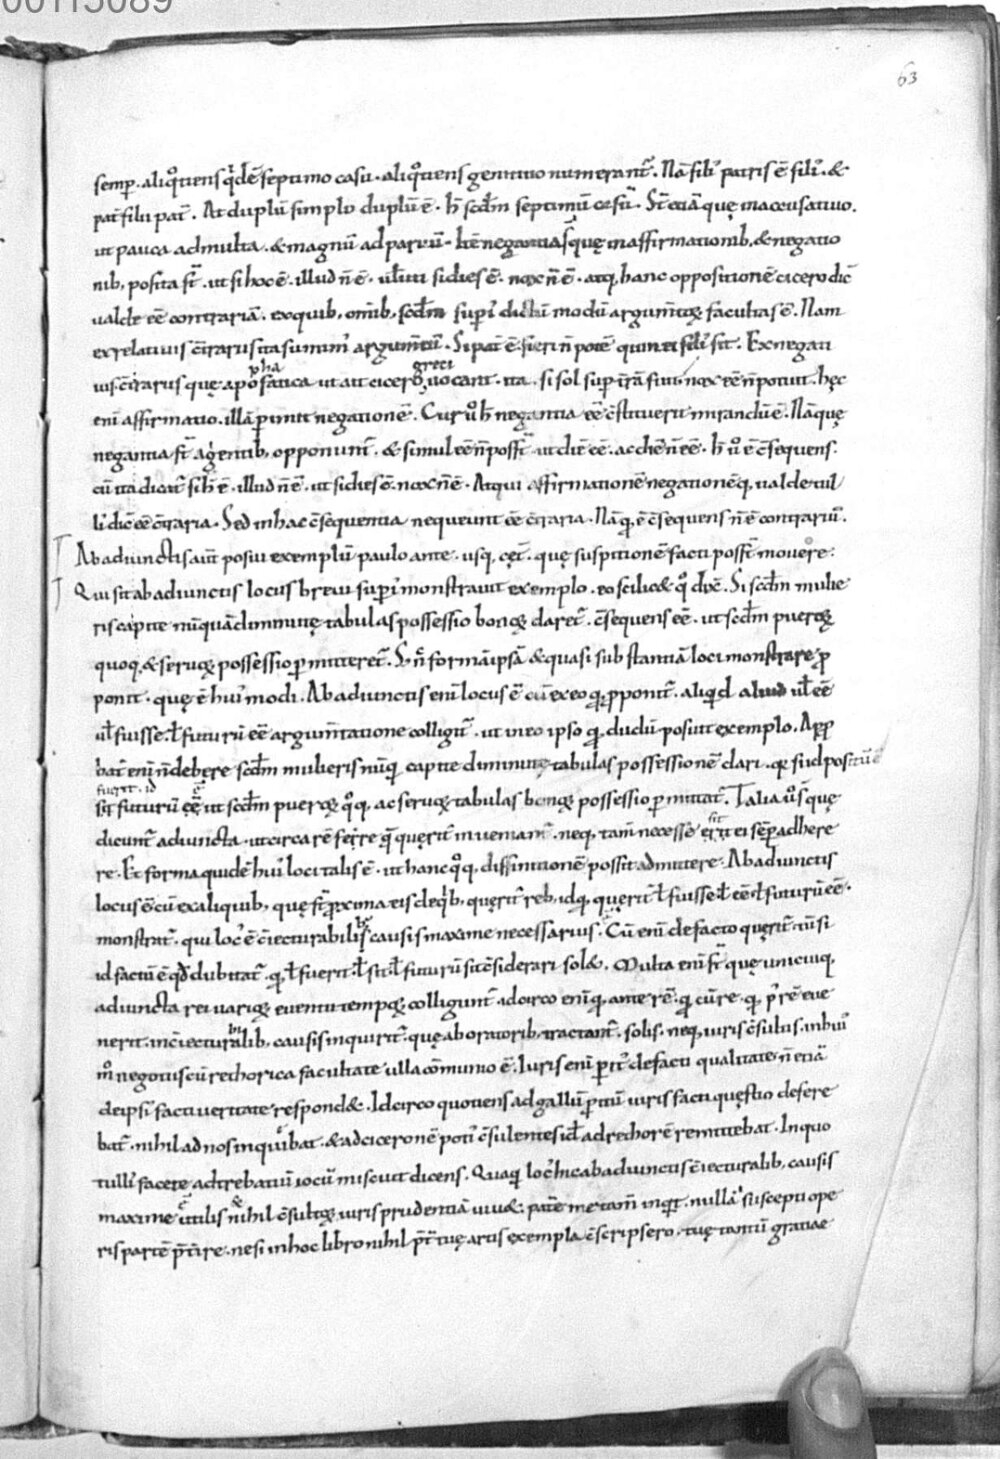 00115089
63
semp̄. aliq̊tiens q̇dē septimo casu. aliq̊tiens genitiuo numerant̄. Nā fili᷒ patris ē fili᷒. &
pat̄ filii pat̄. At duplū simplo duplū ē. h̄ scd̄m septimū casū. St̄ etiā quę in accusatiuo.
ut pauca admulta. & magnū ad paruū. Itē negantia s̄ quę in affirmationib; & negatio
nib; posita st̄. ut si hoc ē. illud n̄ ē. ut si dies ē. nox n̄ ē. atq; hanc oppositionē cicero dic̄
ualde eē contrariā. ex quib; omīb; scd̄m supi᷒ dictū modū argum̄toꝝ facultas ē. Nam
ex relatiuis c̄trariis ita sumim᷒ argum̄tū. Si pat̄ ē. fieri n̄ potē quin ei fili᷒ sit. Ex negati
pha greci
uis c̄trariis quę apofatica ut ait cicero uocant. ita. si sol sup̄ t̄rā fiuit nox eē n̄ potuit. hęc
eni affirmatio. illā p̄imit negationē. Cur ů h̄ negantia eē c̄stituerit mirandū ē. Nāquę
negantia st̄ agentib; opponunt̄. & simul eē n̄ poss̄t ut diē eē. ac diē n̄ eē. h̄ ů ē c̄sequens.
cū ita dicat̄ si h̄ ē. illud n̄ ē. ut si dies ē. nox n̄ ē. Atqui affirmationē negationēq; ualde tul
li᷒ dic̄ eē c̄traria. Sed in hac c̄sequentia nequeunt eē c̄traria. Nā q̇ ē c̄sequens n̄ ē contrariū.
Ab adiunctis aut̄ posui exemplū paulo ante. usq; cęt̄. quę suspitionē facti poss̄t mouere:
Qui sit ab adiunctis locus breui supi᷒ monstrauit exemplo. eo scilic& q̊ dix̄. Si scd̄m mulie
ris capite nūquā diminutę tabulas possessio bonoꝝ daret̄. c̄sequens eē. ut scd̄m pueroꝝ
quoq; & seruoꝝ possessio p̄mitteret̄. formā ipsā & quasi substantiā loci monstrare p̄
ponit. quę ē hui᷒ modi. Ab adiunctis enī locus ē cū ex eo q̇ p̄ponit̄. aliqd aliud ut eē
uł fuisse. ł futurū eē argum̄tatione colligit̄. ut in eo ipso q̇ dudū posuit exemplo. App̄
bat̄ enī n̄ debere scd̄m mulieris nūq̇ capite diminutę tabulas possessionē dari. q̇ si id positū ē
fuerit. id ē
sit futurū eē ut scd̄m pueroꝝ q̊q; ac seruoꝝ tabulas bonoꝝ possessio p̄mittat̄. Talia ůs quę
fit
dicunt̄ adiuncta. ut circa rē ferre q̄ quęrit̄ inueniant̄. neq; tam̄ necesse erit ei sēp̄ adhere
re. Et forma quidē hui᷒ loci talis ē. ut hanc q̊q; diffinitionē possit admittere. Ab adiunctis
locus ē cū ex aliquib; quę st̄ proxima eis de qb; quęrit̄ reb; id q̇ quęrit̄ ł fuisse. ł eē. ł futurū eē.
monstrat̄. qui loc᷒ ē c̄iecturabilib; causis maxime necessarius. Cū enī de facto quęrit̄
id factū ē q̄ dubitat̄. q̇ ł fuerit. ł sit. ł futurū sit c̄siderari sol&. Multa enī st̄ quę unicuiq;
adiuncta rei uarioꝝ euentu tempoꝝ colligunt̄. idcirco enī q̇ ante rē. q̇ cū re. q̇ p᷒ rē eue
nerit. in c̄iecturalib; causis inquirit̄. quę ab oratorib; tractant̄. solis. neq; iuris c̄sultis. in hui᷒
m̊ negotiis cū rethorica facultate ulla c̄munio ē. Iuris enī perit᷒ de facti qualitate n̄ etiā
de ipsi᷒ facti ueritate respond&. Idcirco quotiens ad gallū p̄itū iuris facti quęstio defere
bat̄. nihil ad nos inquibat. & ad ciceronē poti᷒ c̄sulentes id ad rethorē remittebat. In quo
tulli᷒ facete ad trebatiū iocū miscuit dicens. Quāq̇ loc᷒ hic ab adiunctis c̄iecturalib; causis
maxime utilis nihil c̄sultoꝝ iuris prudentiā iuu&: patē me tam̄ inqt. nullā suscepti ope
ris partē p̄t̄ire. ne si in hoc libro nihil p̄t̄ tuę artis exempla c̄scripsero. tuę tantū gratiae